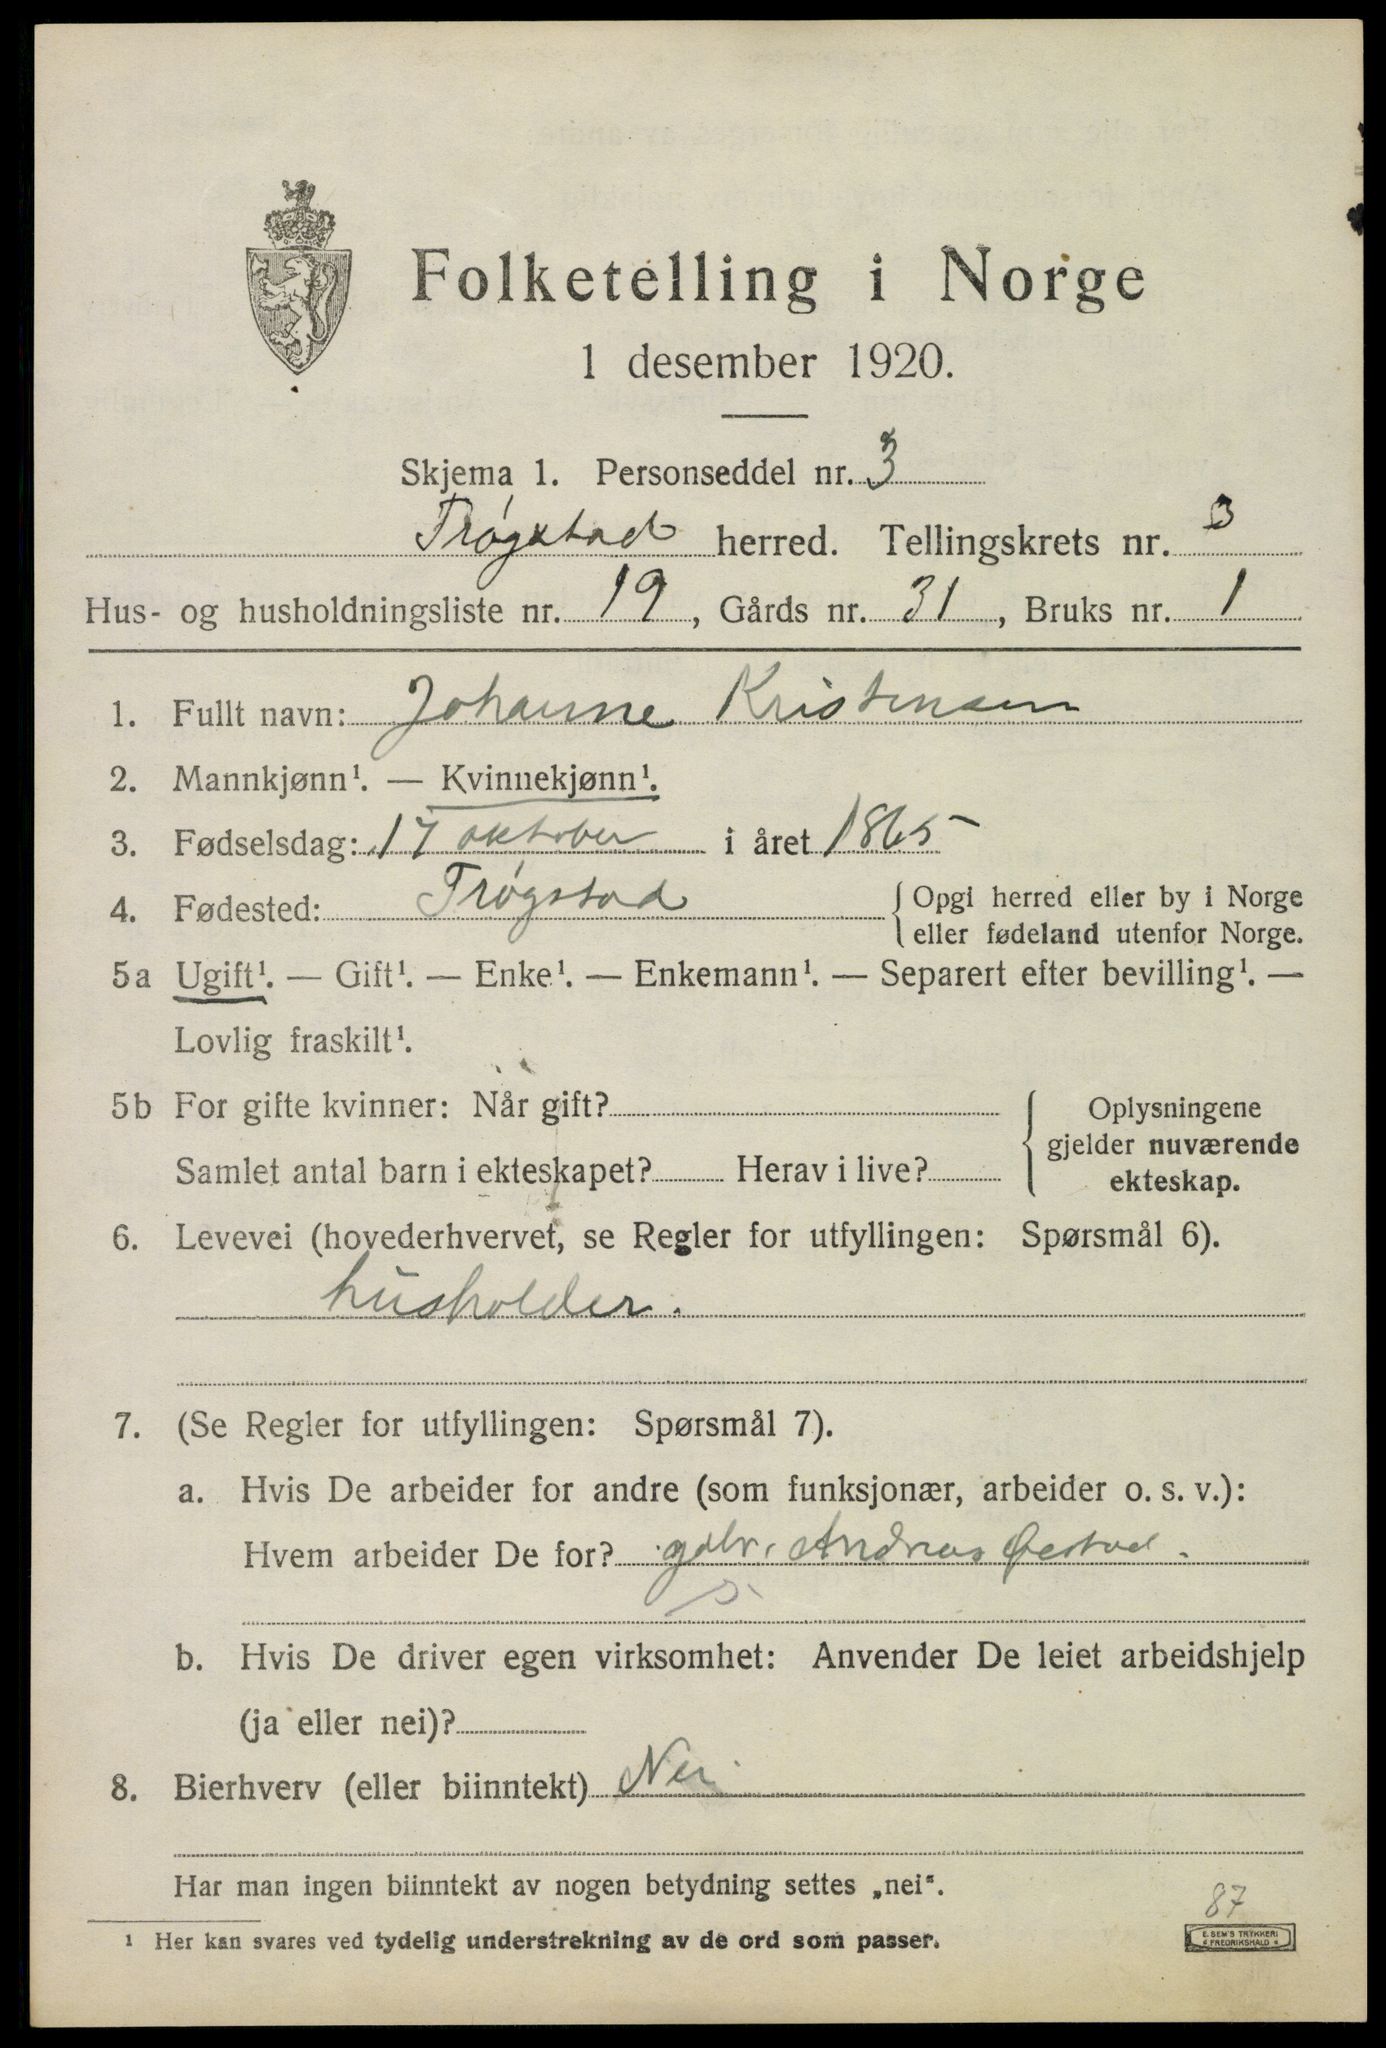 Folketelling i Norge
1 desember 1920.
Skjema 1. Personseddel nr. 3
Trøgstad herred. Tellingskrets nr. 3
Hus- og husholdningsliste nr. 19, Gårds nr. 31, Bruks nr. 1
1. Fullt navn: Johanne Kristensen
2. Mannkjønn¹. — Kvinnekjønn¹.
3. Fødselsdag: 17 oktober i året 1865
4. Fødested: Trøgstad { Opgi herred eller by i Norge
eller fødeland utenfor Norge.
5a Ugift¹. — Gift¹. — Enke¹. — Enkemann¹. — Separert efter bevilling¹. —
Lovlig fraskilt¹.
5b For gifte kvinner: Når gift? { Oplysningene
gjelder nuværende
Samlet antal barn i ekteskapet? Herav i live? ekteskap.
6. Levevei (hovederhvervet, se Regler for utfyllingen: Spørsmål 6).
husholder.
7. (Se Regler for utfyllingen: Spørsmål 7).
a. Hvis De arbeider for andre (som funksjonær, arbeider o. s. v.):
Hvem arbeider De for? gdbr. Andreas Øestad.
b. Hvis De driver egen virksomhet: Anvender De leiet arbeidshjelp
(ja eller nei)?
8. Bierhverv (eller biinntekt) Nei
Har man ingen biinntekt av nogen betydning settes „nei“.
87
¹ Her kan svares ved tydelig understrekning av de ord som passer.
E. SEM'S TRYKKERI
FREDRIKSHALD